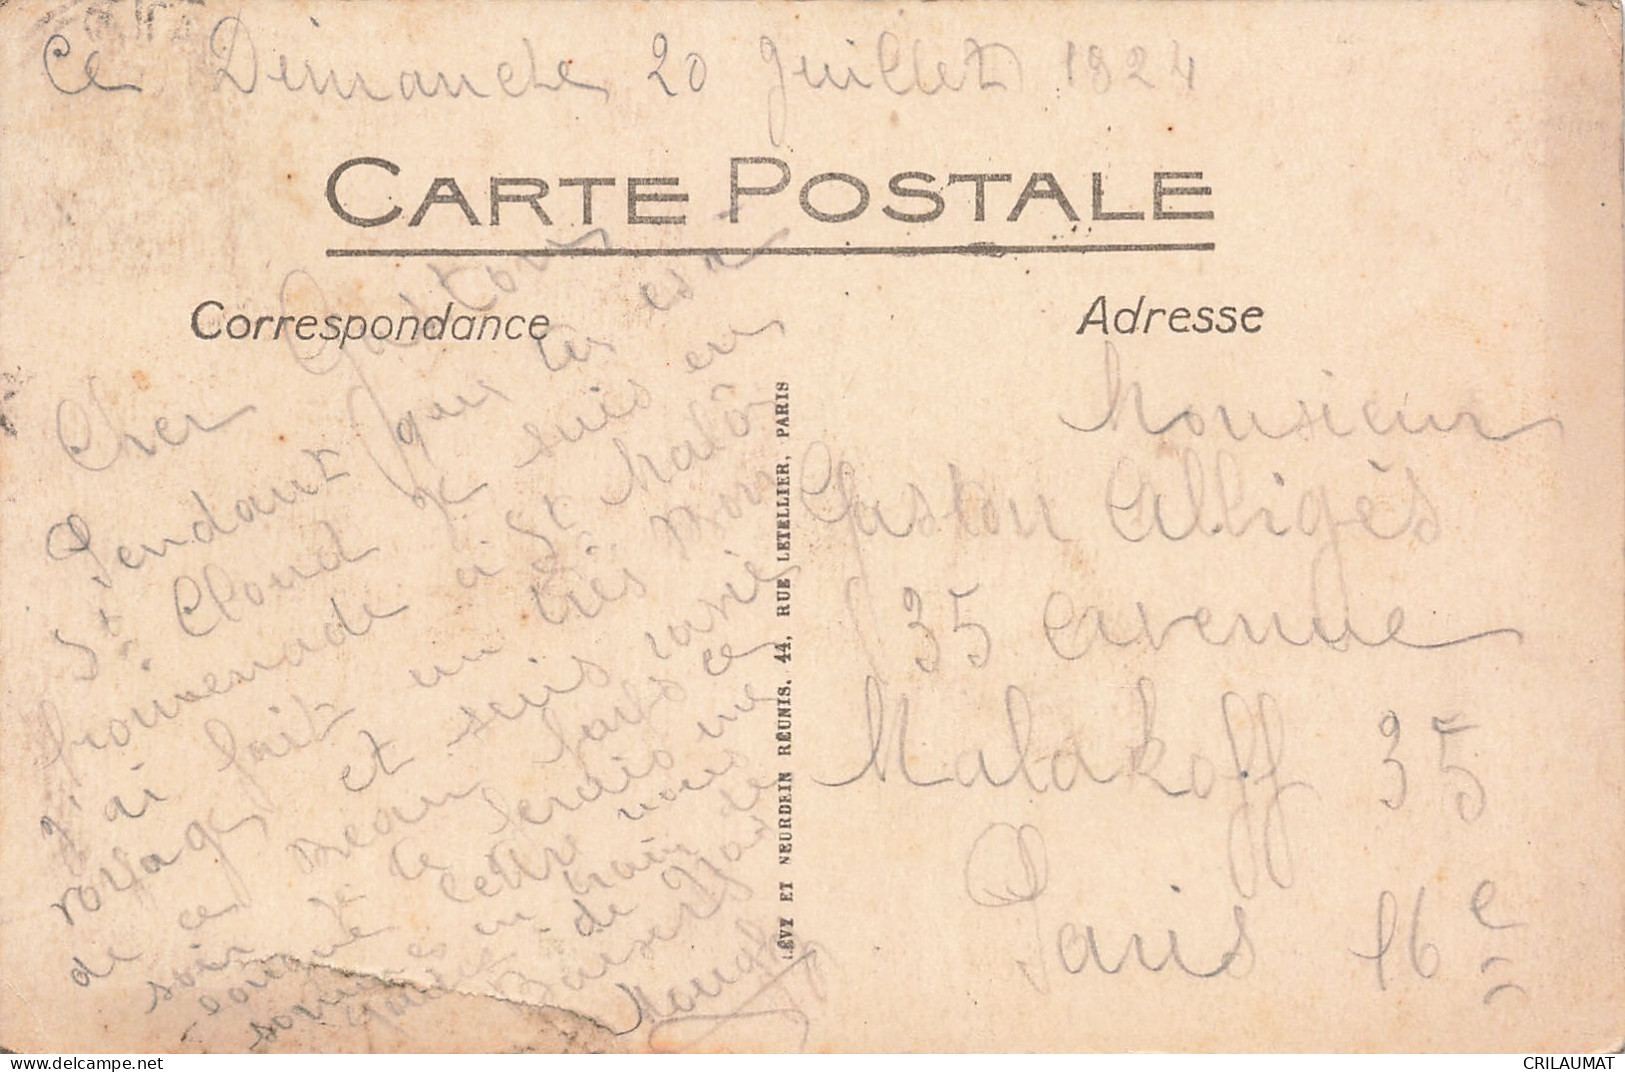 Ce Dimanche 20 Juillet 1924
CARTE POSTALE
Correspondance
Adresse
Cher Gaston
Pendant que tu es à
St. Cloud je suis en
promenade à St Malo
j'ai fait un très Bon
voyage et suis ravie
de ce Beau
soir je te
cette nous
sommes en train de
de
Baisers
LÉVY ET NEURDEIN RÉUNIS, 44, RUE LETELLIER, PARIS
Monsieur
Gaston Alligès
35 avenue
Malakoff 35
Paris 16e
CRILAUMAT